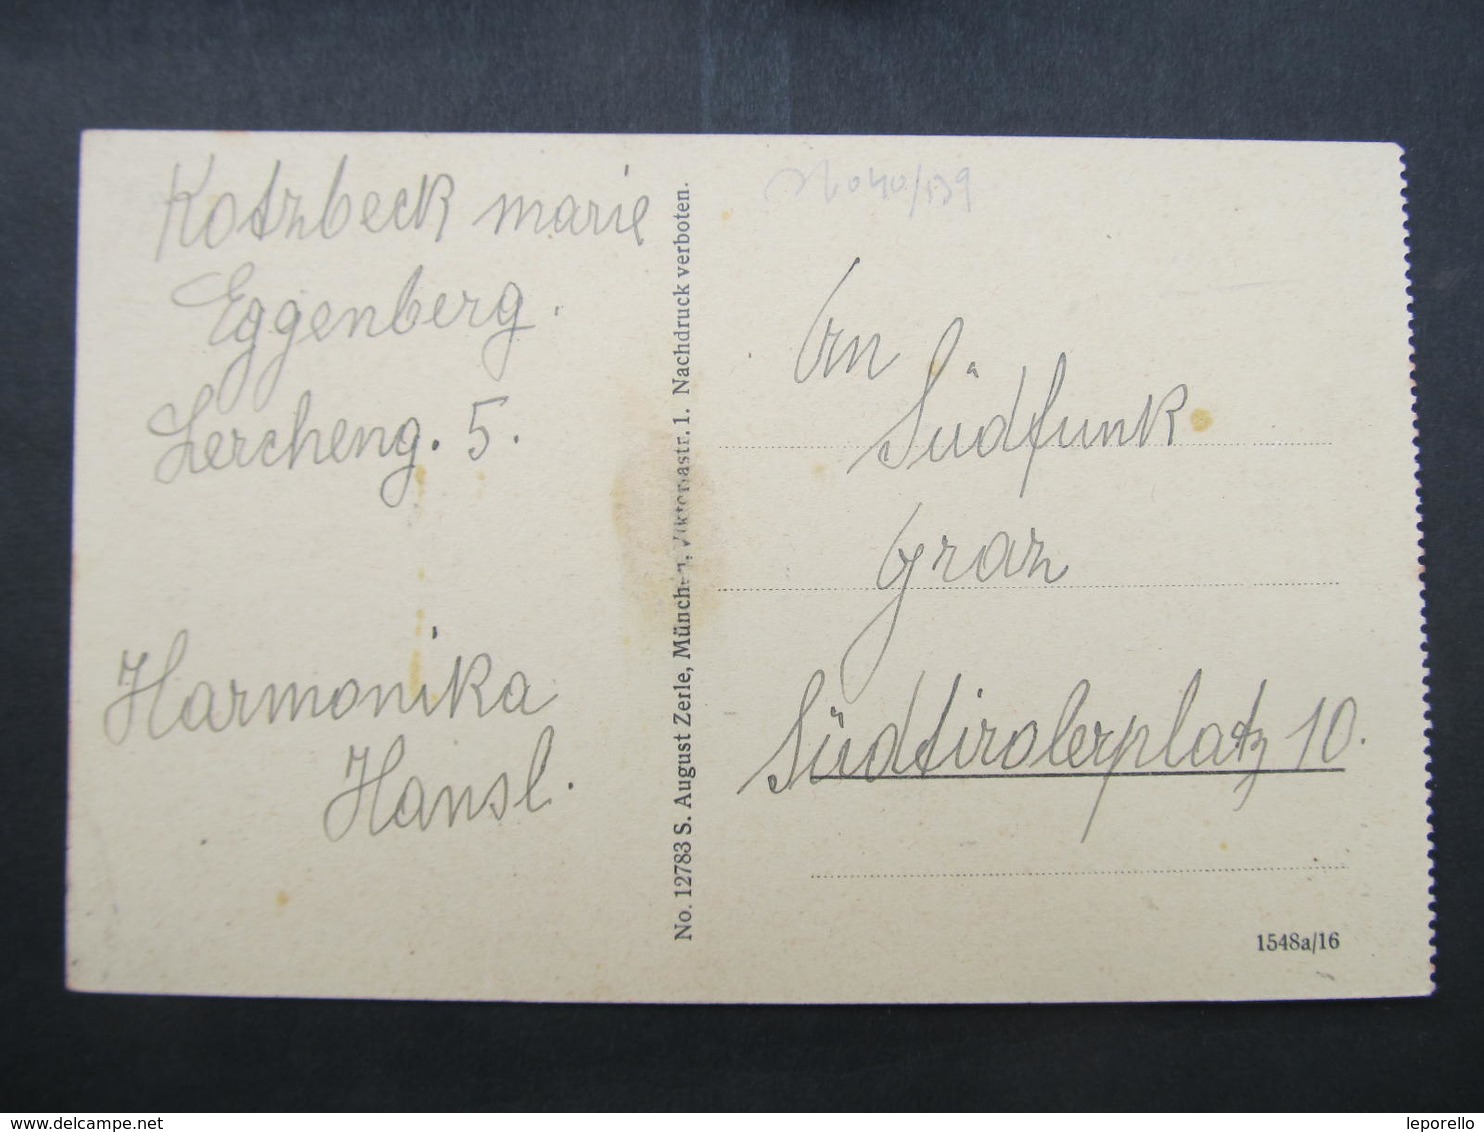 Kotzbeck marie
Eggenberg.
Lercheng. 5.
Harmonika
Hansl.
No. 12783 S. August Zerle, München, Viktoriastr. 1. Nachdruck verboten.
An
Südfunk
Graz
Südtirolerplatz 10.
1548a/16
www.delcampe.net
leporello